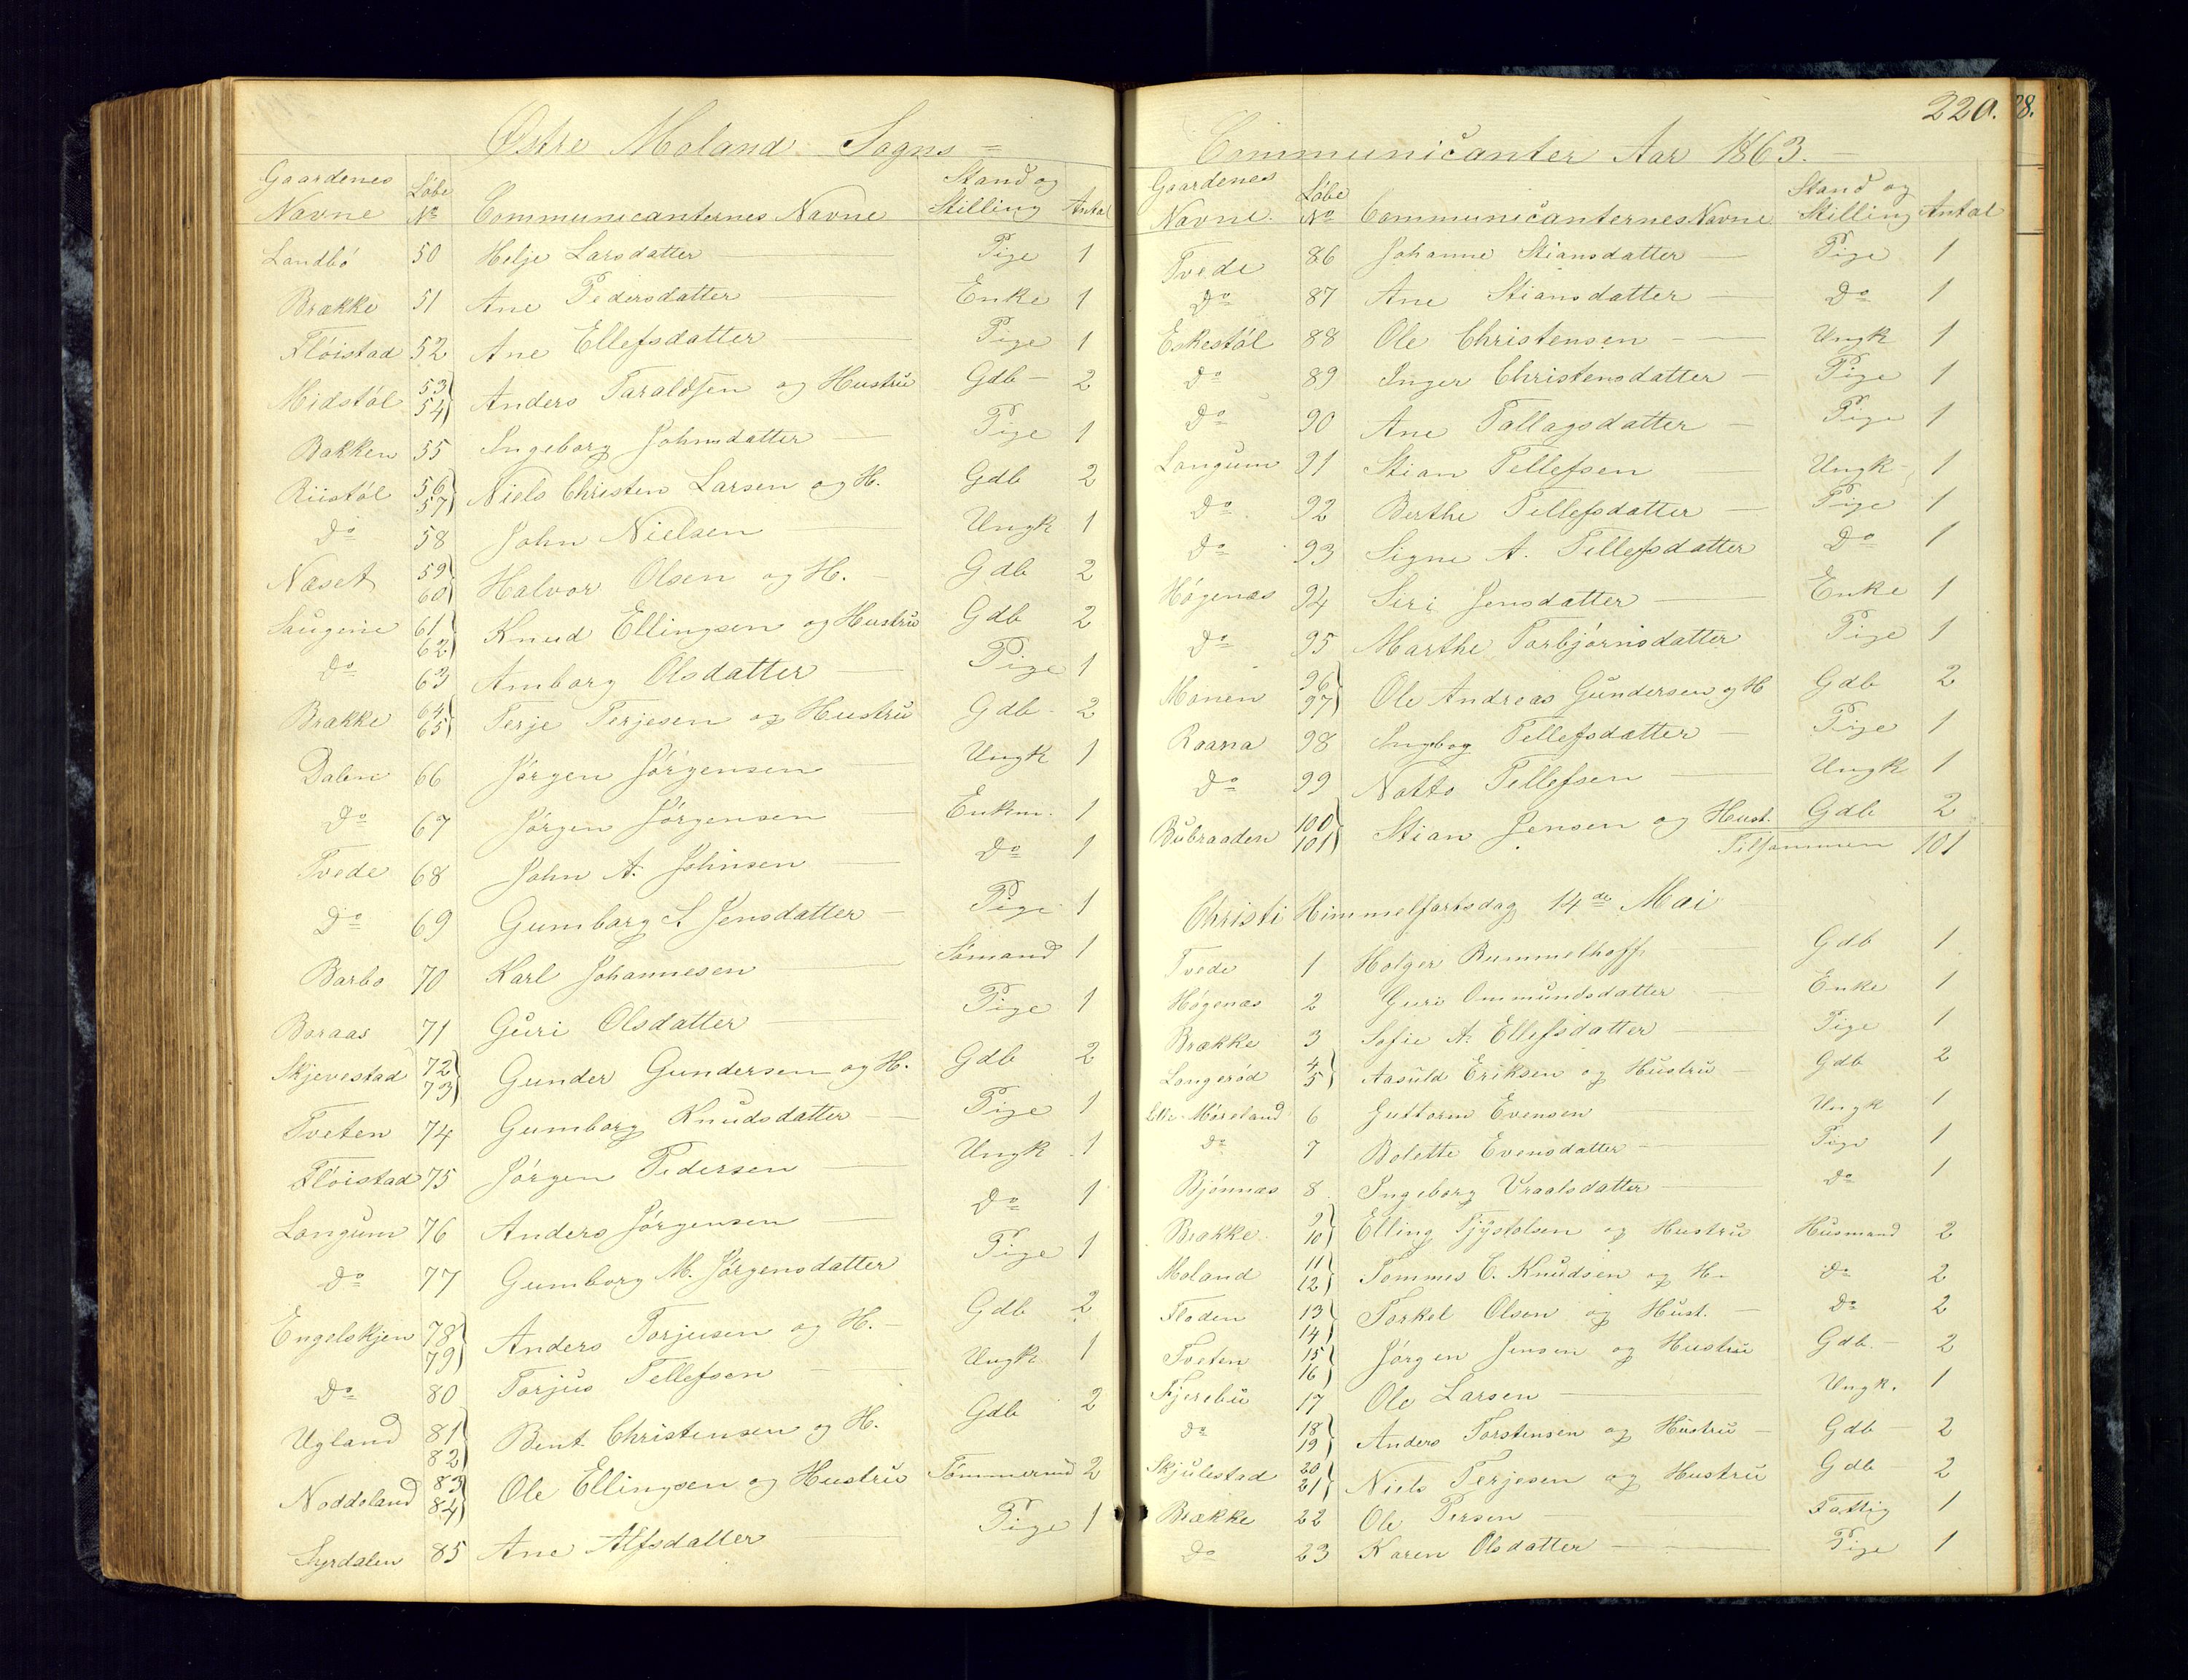 Østre Moland Sogns =
Gaardenes Navne Løbe No Communicanternes Navne Stand og Stilling Antal
Landbö 50 Helje Larsdatter Pige 1
Brække 51 Ane Pedersdatter Enke 1
Flöistad 52 Ane Ellefsdatter Pige 1
Midstöl 53 54 Anders Taraldsen og Hustru Gdb 2
Bakken 55 Ingeborg Johnsdatter Pige 1
Riistöl 56 57 Niels Christen Larsen og H. Gdb 2
Do 58 John Nielsen Ungk 1
Næset 59 60 Halvor Olsen og H. Gdb 2
Saugene 61 62 Knud Ellingsen og Hustru Gdb 2
Do 63 Amborg Olsdatter Pige 1
Brække 64 65 Terje Terjesen og Hustru Gdb 2
Dalen 66 Jörgen Jörgensen Ungk 1
Do 67 Jörgen Jörgensen Enkm. 1
Tvede 68 John A. Johnsen Do 1
Do 69 Gumborg A Jensdatter Pige 1
Barbo 70 Karl Johannesen Sömand 1
Boraas 71 Guri Olsdatter Pige 1
Skjevestad 72 73 Gunder Gundersen og H. Gdb 2
Tveten 74 Gumborg Knudsdatter Pige 1
Flöistad 75 Jörgen Pedersen Ungk 1
Longum 76 Anders Jörgensen Do 1
Do 77 Gumborg M. Jörgensdatter Pige 1
Engelskjen 78 79 Anders Torjusen og H. Gdb 2
Do 80 Torjus Tellefsen Ungk 1
Ugland 81 82 Bent Christensen og H. Gdb 2
Noddeland 83 84 Ole Ellingsen og Hustru Tömmermd 2
Syrdalen 85 Ane Alfsdatter Pige 1
220.
28.
Communicanter Aar 1863.
Gaardenes Navne. Løbe No Communicanternes Navne Stand og Stilling Antal
Tvede 86 Johanne Stiansdatter Pige 1
Do 87 Ane Stiansdatter Do 1
Eskestöl 88 Ole Christensen Ungk 1
Do 89 Inger Christensdatter Pige 1
Do 90 Ane Tallagsdatter Pige 1
Longum 91 Stian Tellefsen Ungk 1
Do 92 Berthe Tellefsdatter Pige 1
Do 93 Signe A. Tellefsdatter Do 1
Högenæs 94 Siri Jensdatter Enke 1
Do 95 Marthe Torbjörnsdatter Pige 1
Monen 96 97 Ole Andreas Gundersen og H Gdb 2
Raana 98 Ingbog Tellefsdatter Pige 1
Do 99 Notto Tellefsen Ungk 1
Bubraaden 100 101 Stian Jensen og Hust. Gdb 2
Tilsammen 101
Christi Himmelfartsdag 14de Mai
Tvede 1 Holger Rummelhoff Gdb 1
Högenæs 2 Guri Ommundsdatter Enke 1
Brække 3 Sofie A. Ellefsdatter Pige 1
Longeröd 4 5 Aasuld Eriksen og Hustru Gdb 2
Möreland 6 Guttorm Evensen Ungk 1
Do 7 Bolette Evensdatter Pige 1
Bjönnæs 8 Ingeborg Vraalsdatter Do 1
Brække 9 10 Elling Tjöstolsen og Hustru Husmand 2
Moland 11 12 Tommes C. Knudsen og H. Do 2
Floden 13 14 Torkel Olsen og Hust. Do 2
Tveten 15 16 Jörgen Jensen og Hustru Gdb 2
Fjerebu 17 Ole Larsen Ungk. 1
Do 18 19 Anders Torstensen og Hustru Gdb 2
Skjulestad 20 21 Niels Terjesen og Hustru Gdb 2
Brække 22 Ole Persen Fattig 1
Do 23 Karen Olsdatter Pige 1